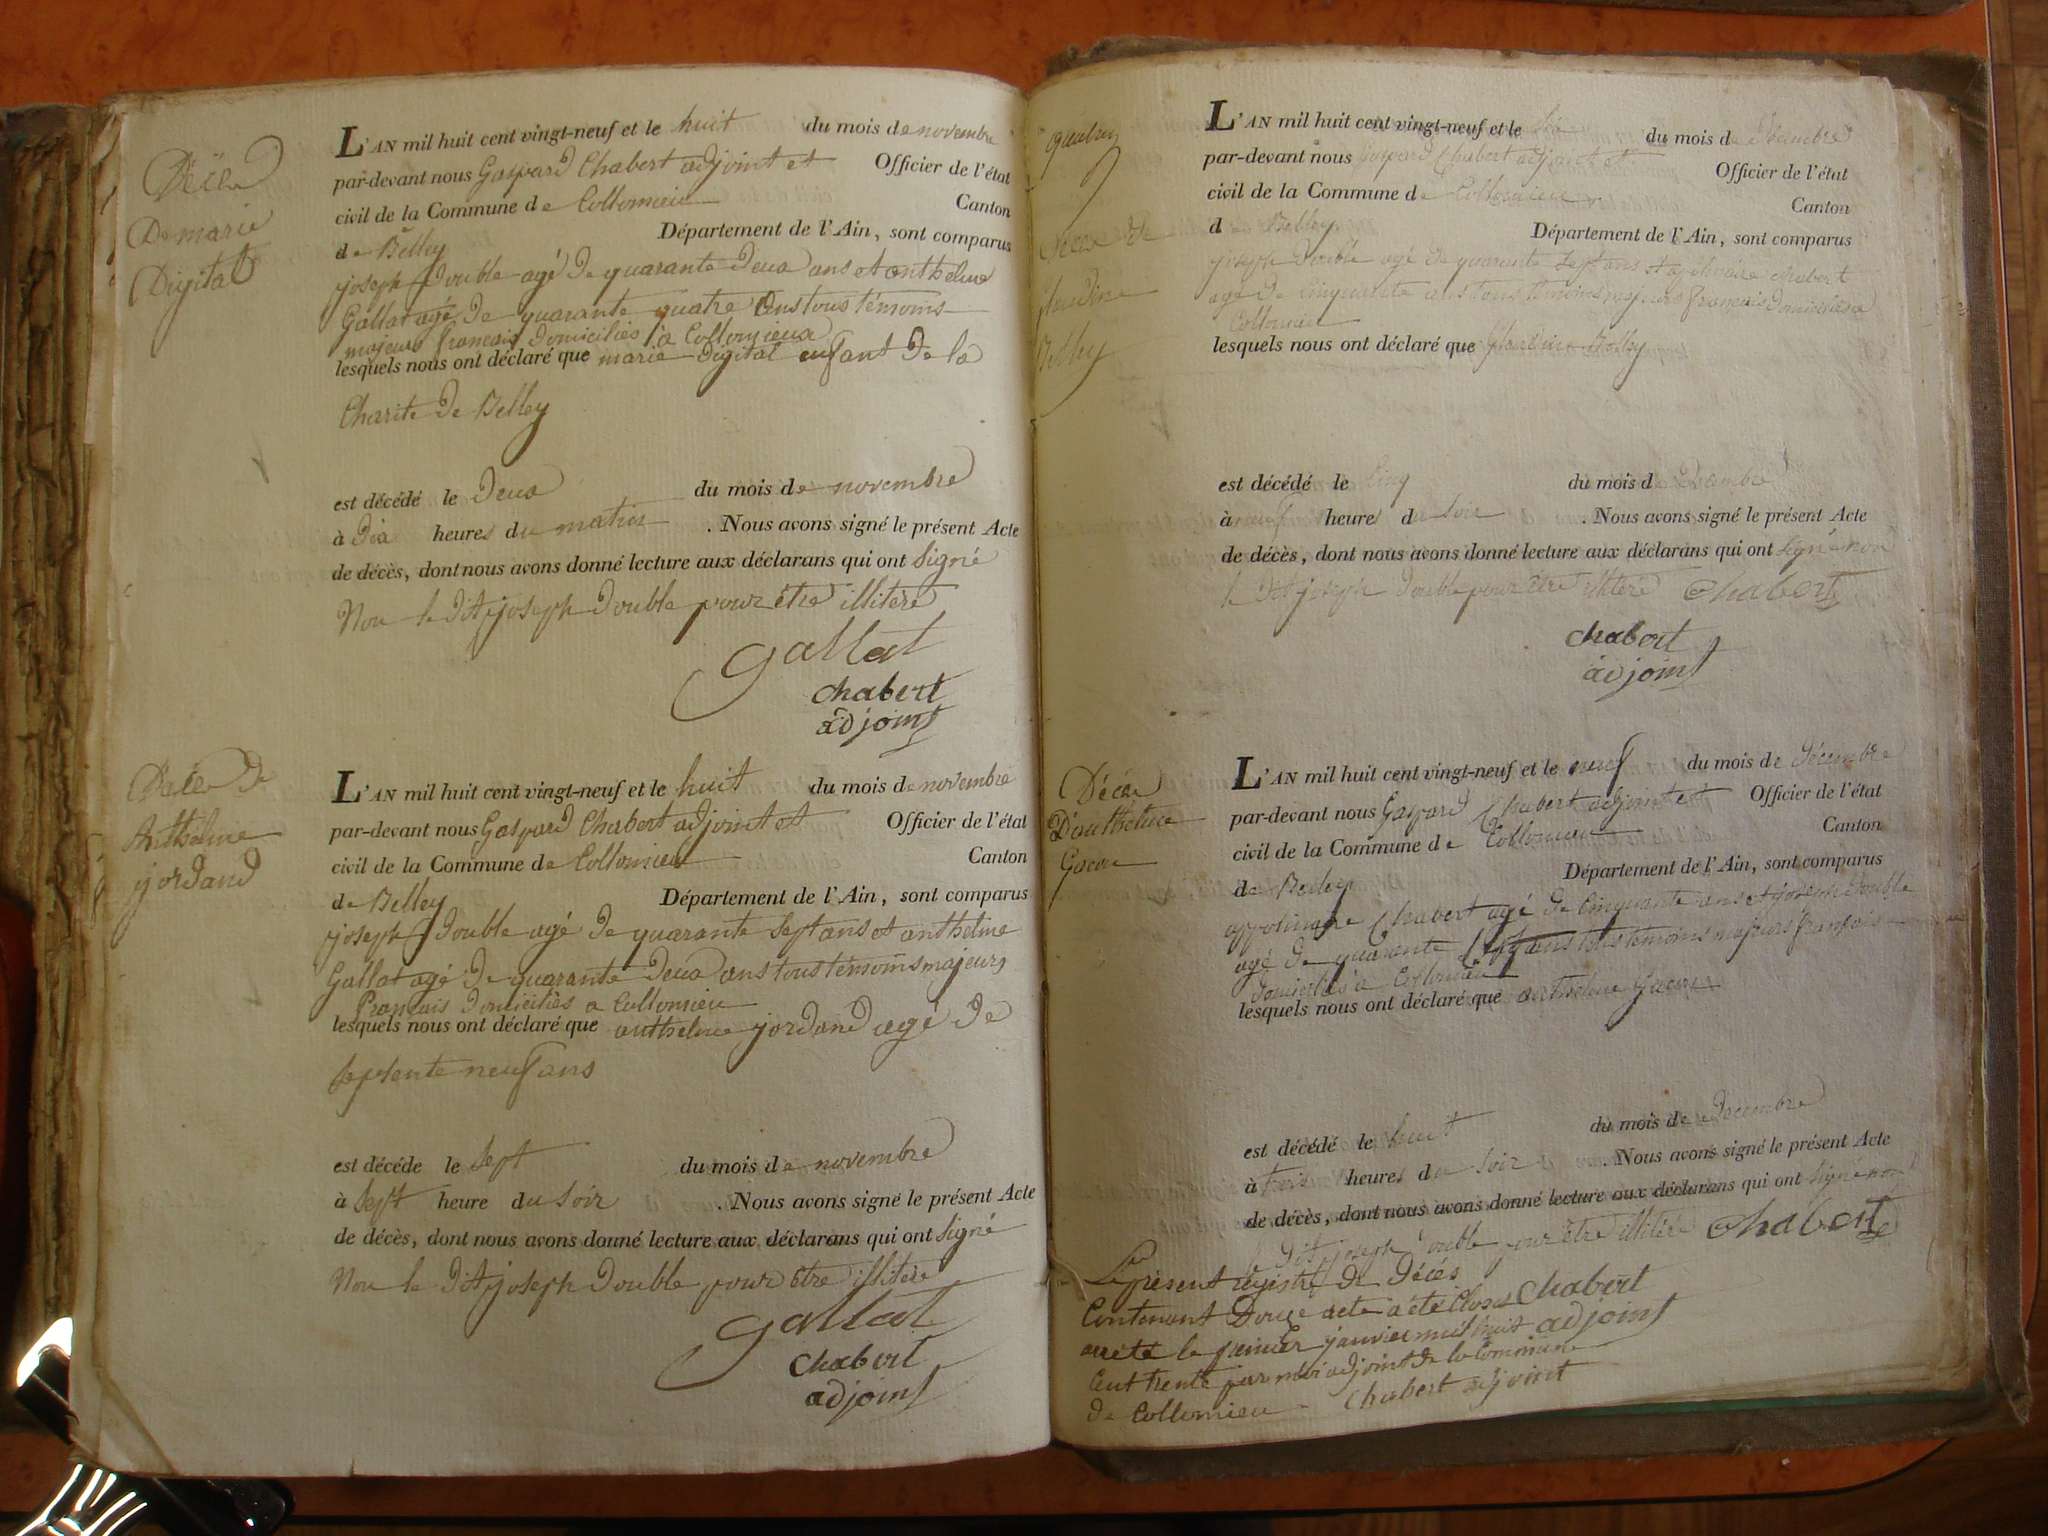 Décès
De marie
Digital
L'AN mil huit cent vingt-neuf et le huit du mois de novembre
par-devant nous Gaspard Chabert adjoint et Officier de l'état
civil de la Commune de Collomieu Canton
de Belley Département de l'Ain, sont comparus
joseph Double agé De quarante Deux ans et anthelme
Gallat agé De quarante quatre ans tous témoins
majeurs francais Domiciliés à Collomieux
lesquels nous ont déclaré que marie Digital enfant De la
Charite De Belley
est décédé le Deux du mois de novembre
à Dix heures du matin . Nous avons signé le présent Acte
de décès, dont nous avons donné lecture aux déclarans qui ont signé
Non le Dit joseph Double pour être illitéré
Gallat
Chabert
adjoint
Décès De
Anthelme
jordand
L'AN mil huit cent vingt-neuf et le huit du mois de novembre
par-devant nous Gaspard Chabert adjoint et Officier de l'état
civil de la Commune de Collomieu Canton
de Belley Département de l'Ain, sont comparus
joseph Double agé De quarante Sept ans et anthelme
Gallat agé De quarante Deux ans tous témoins majeurs
Francais Domiciliés a Collomieu
lesquels nous ont déclaré que anthelme jordand agé De
septente neuf ans
est décéde le Sept du mois de novembre
à Sept heure du Soir . Nous avons signé le présent Acte
de décès, dont nous avons donné lecture aux déclarans qui ont signé
Non le Dit joseph Double pour être illitéré
Gallat
Chabert
adjoint
Décès de
Claudine
Belley
L'AN mil huit cent vingt-neuf et le six du mois de Décembre
par-devant nous Gaspard Chabert adjoint et Officier de l'état
civil de la Commune de Collomieu Canton
d Belley Département de l'Ain, sont comparus
joseph Double agé De quarante Sept ans et apolinaire Chabert
agé De Cinquante ans tous témoins majeurs francais Domiciliés a
Collomieu
lesquels nous ont déclaré que
est décédé le Cinq du mois de Décembre
à neuf heures du Soir . Nous avons signé le présent Acte
de décès, dont nous avons donné lecture aux déclarans qui ont signé non
le Dit joseph Double pour être illitéré Chabert
Chabert
adjoint
Décès
D'anthelme
Gacon
L'AN mil huit cent vingt-neuf et le neuf du mois de Décembre
par-devant nous Gaspard Chabert adjoint et Officier de l'état
civil de la Commune de Collomieu Canton
de Belley Département de l'Ain, sont comparus
appolinaire Chabert agé De Cinquante ans et joseph Double
agé De quarante Sept ans tous témoins majeurs francais
Domiciliés à Collomieu
lesquels nous ont déclaré que anthelme Gacon
est décédé le huit du mois de Décembre
à trois heures du Soir . Nous avons signé le présent Acte
de décès, dont nous avons donné lecture aux déclarans qui ont signé non
le Dit joseph Double pour être illitéré Chabert
Le présent registre De Décés
Contenant Douze acte a été Clos et Chabert
arreté le premier janvier mil huit adjoint
Cent trente par moi adjoint de la Commune
De Collomieu - Chabert adjoint